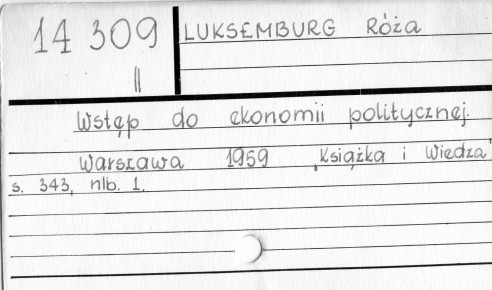 14 309
II
LUKSEMBURG Róża
Wstęp do ekonomii politycznej.
Warszawa 1959 "Książka i Wiedza"
s. 343, nlb. 1.